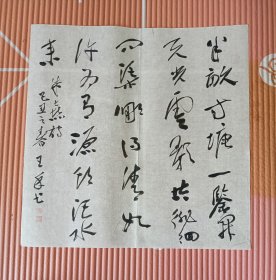 半畝方塘一鑒開
天光雲影共徘徊
問渠哪得清如
許為有源頭活水
来
朱熹詩
己丑之春 王